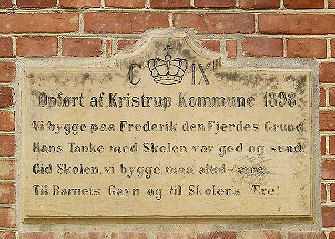 C IX
Opført af Kristrup Kommune 1898
Vi bygge paa Frederik den Fjerdes Grund
Hans Tanke med Skolen var god og sund
Gid Skolen, vi bygge maa altid være
Til Barnets Gavn og til Skolens Ære